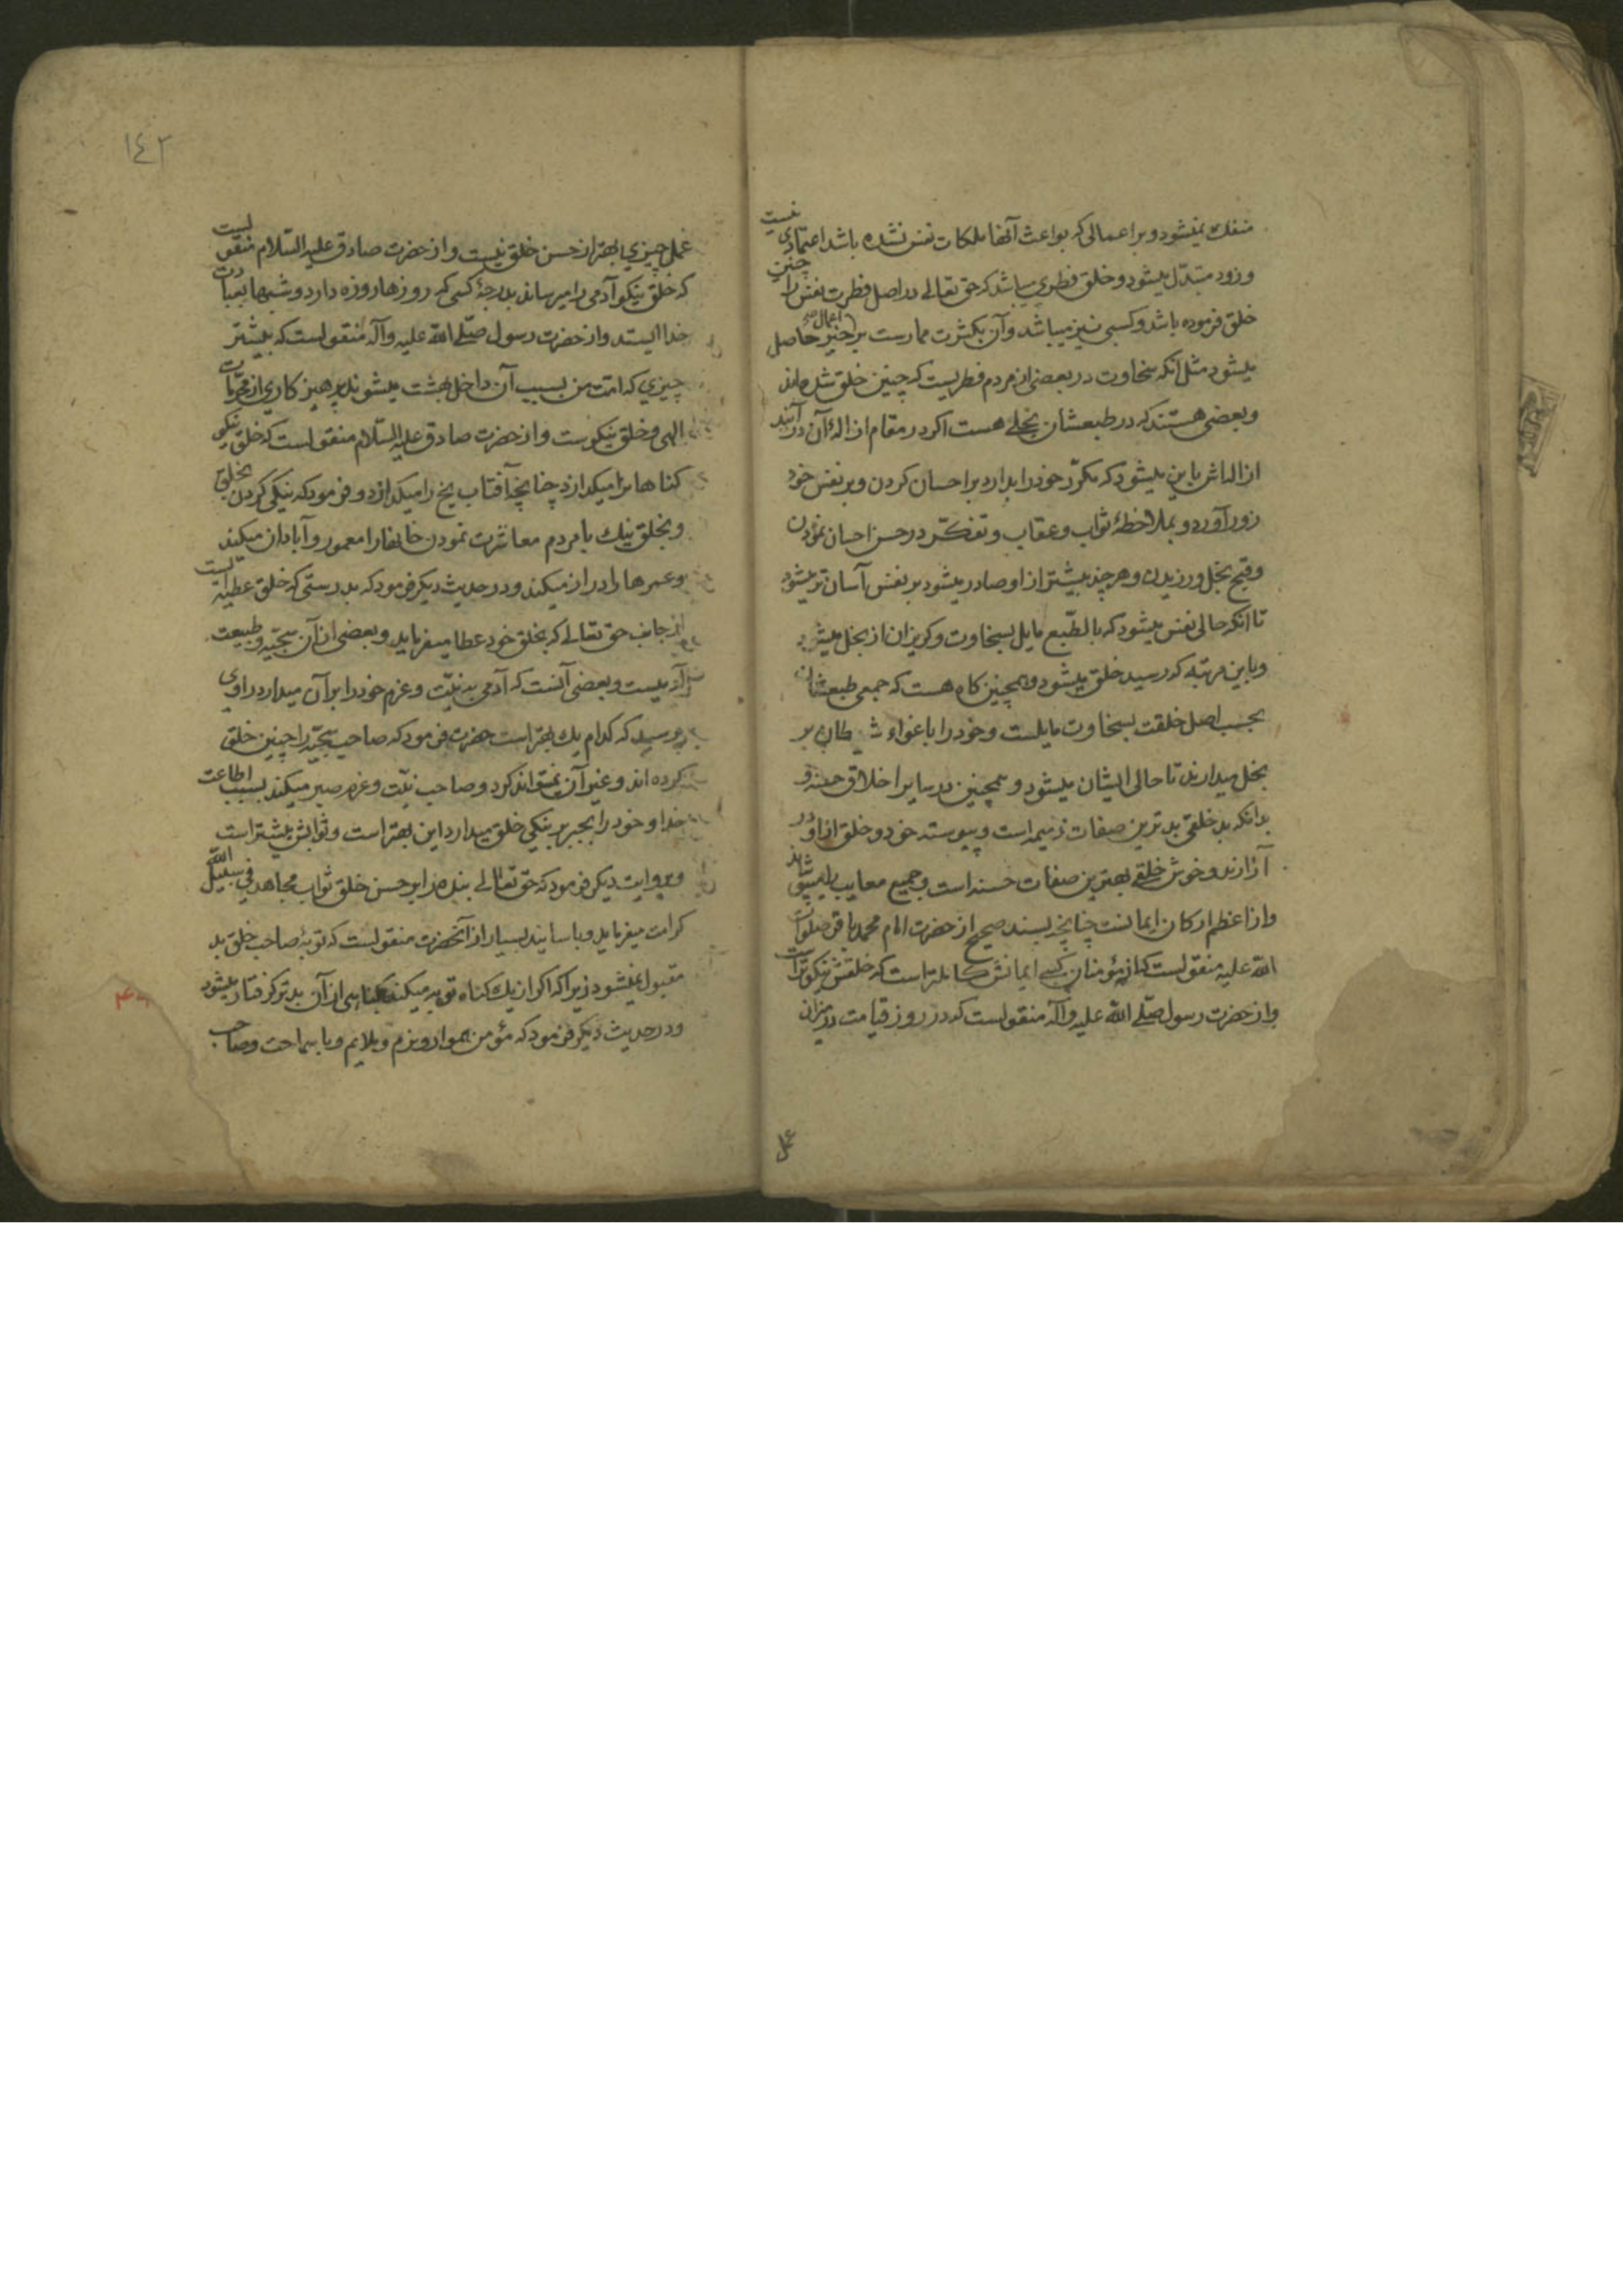 منفك نمیشود و بر اعمالی که بواعث آنها ملکات نفس نشده باشد اعتمادی نیست
و زود متبدّل میشود و خلق فطری میباشد که حق تعالی در اصل فطرت نفس را چنین
خلق فرموده باشد و کسبی نیز میباشد و آن بکثرت ممارست بر اعمال خیر حاصل
میشود مثل انکه سخاوت در بعضی از مردم فطریست که چنین خلق شده اند
و بعضی هستند که در طبعشان بخلی هست اکر در مقام ازالهٔ آن در آیند
ازاله اش باین میشود که مکرّر خود را بدارد بر احسان کردن و بر نفس خود
زور آورد و بملاحظهٔ ثواب و عقاب و تفکّر در حسن احسان نمودن
و قبح بخل ورزیدن و هر چند بیشتر از او صادر میشود بر نفس آسان تر میشود
تا انکه حالی نفس میشود که بالطّبع مایل بسخاوت و کریزان از بخل میشود
و باین مرتبه که رسید خلق میشود و همچنین کاه هست که جمعی طبعشان
بحسب اصل خلقت بسخاوت مایلست و خود را باغواء شیطان بر
بخل میدارند تا حالی ایشان میشود و همچنین در سایر اخلاق حسنه و
بدانکه بد خلقی بدترین صفات ذمیمه است و پیوسته خود و خلق از او در
آزارند و خوش خلقی بهترین صفات حسنه است و جمیع معایب را میپوشاند
و از اعظم ارکان ایمانست چنانچه بسند صحیح از حضرت امام محمد باقر صلوات
الله علیه منقولست که از مؤمنان کسی ایمانش کاملتر است که خلقش نیکوتر است
و از حضرت رسول صلّی الله علیه و آله منقولست که در روز قیامت در میزان
عمل
١٤٢
عمل چیزی بهتر از حسن خلق نیست و از حضرت صادق علیه السّلام منقولست
که خلق نیکو آدمی را میرساند بدرجهٔ کسی که روزها روزه دارد و شبها بعبادت
خدا ایستد و از حضرت رسول صلّی الله علیه و آله منقولست که بیشتر
چیزی که امّت من بسبب آن داخل بهشت میشوند پرهیز کاری از محرّمات
الهی و خلق نیکوست و از حضرت صادق علیه السّلام منقولست که خلق نیکو
کناها نرا میکدازد چنانچه آفتاب یخ را میکدازد و فرمود که نیکی کردن بخلق
و بخلق نیك با مردم معاشرت نمودن خانها را معمور و آبادان میکند
و عمرها را دراز میکند و در حدیث دیکر فرمود که بدرستی که خلق عطیه ایست
از جانب حق تعالی که بخلق خود عطا میفرماید و بعضی از آن سجیّه و طبیعت
آدمیست و بعضی آنست که آدمی به نیّت و عزم خود را بر آن میدارد راوی
پرسید که کدام یك بهتر است حضرت فرمود که صاحب سجیّه را چنین خلق
کرده اند و غیر آن نمیتواند کرد و صاحب نیّت و عزم صبر میکند بسبب اطاعت
خدا و خود را بجبر بر نیکی خلق میدارد این بهتر است و ثوابش بیشتر است
و بروایت دیکر فرمود که حق تعالی بنده را بر حسن خلق ثواب مجاهد فی سبیل الله
کرامت میفرماید و باسانید بسیار از آنحضرت منقولست که توبهٔ صاحب خلق بد
مقبول نمیشود زیرا که اکر از یك کناه توبه میکند بکناهی از آن بدتر کرفتار میشود
و در حدیث دیکر فرمود که مؤمن هموار و نرم و ملایم و با سماحت و صاحب